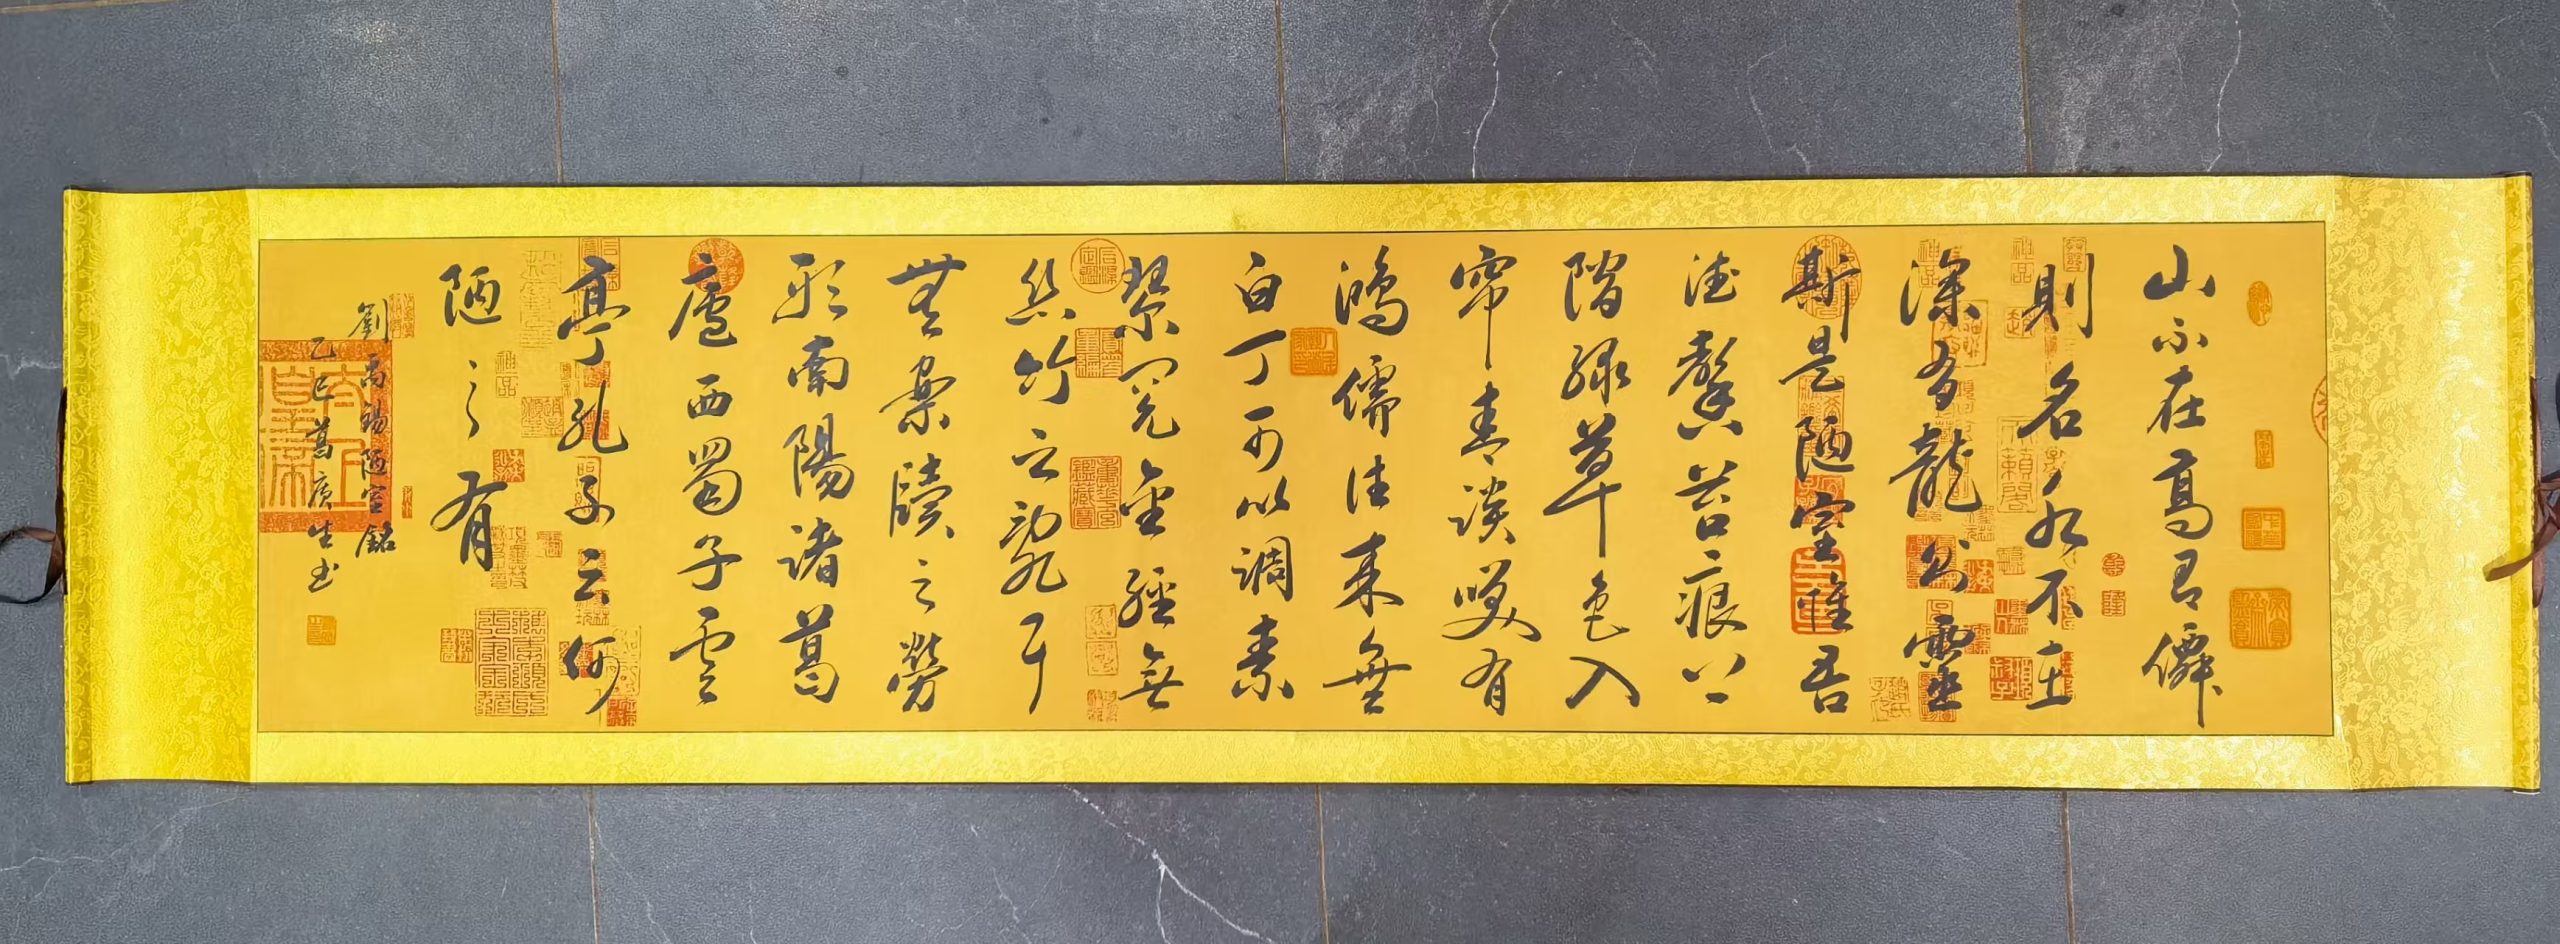 山不在高有僊
則名水不在
深有龍則靈
斯是陋室惟吾
德馨苔痕上
階緑草色入
帘青談笑有
鴻儒往来無
白丁可以調素
琴閲金經無
丝竹之亂耳
無案牘之勞
形南陽諸葛
廬西蜀子雲
亭孔子云何
陋之有
劉禹錫陋室銘
乙巳葛庚生书
太上皇帝